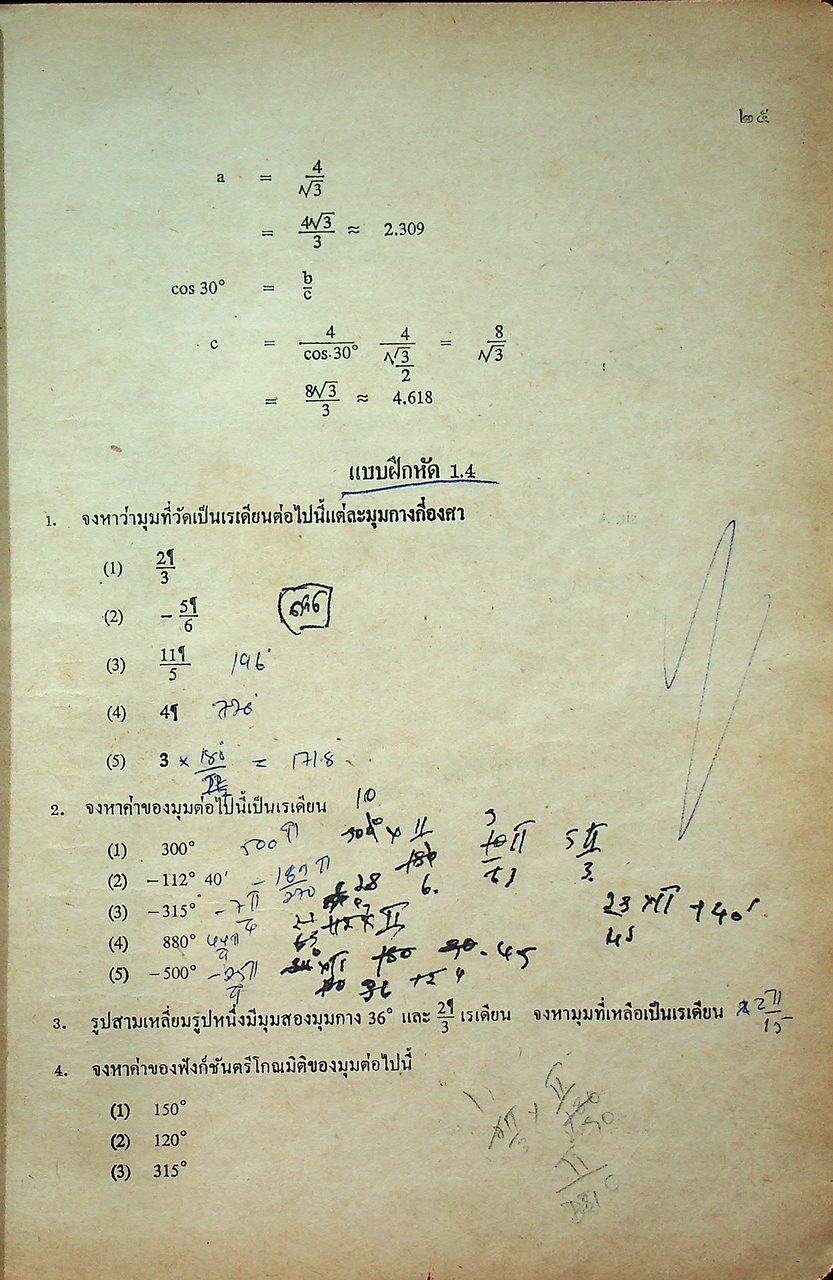 ๒๕
a = 4/√3
= 4√3/3 ≈ 2.309
cos 30° = b/c
c = 4/cos·30° 4/(√3/2) = 8/√3
= 8√3/3 ≈ 4.618
แบบฝึกหัด 1.4
1. จงหาว่ามุมที่วัดเป็นเรเดียนต่อไปนี้แต่ละมุมกางกี่องศา
(1) 2¶/3
(2) - 5¶/6
(3) 11¶/5 196°
(4) 4¶
(5) 3 × 180°/π = 171.8°
2. จงหาค่าของมุมต่อไปนี้เป็นเรเดียน 10
(1) 300° 5π/3
(2) -112° 40′
(3) -315° - 7π/4
(4) 880° 44π/9
(5) -500° - 25π/9
23 × π + 40′
45
3. รูปสามเหลี่ยมรูปหนึ่งมีมุมสองมุมกาง 36° และ 2¶/3 เรเดียน จงหามุมที่เหลือเป็นเรเดียน 2π/15
4. จงหาค่าของฟังก์ชันตรีโกณมิติของมุมต่อไปนี้
(1) 150°
(2) 120°
(3) 315°